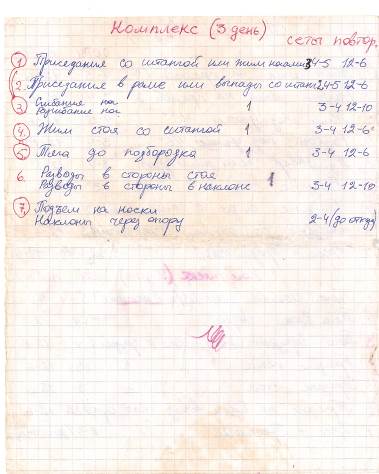 Комплекс (3 день)
сеты повтор.
1 Приседания со штангой или жим ногами 34-5 12-6
2. Приседание в раме или выпады со штанг 24-5 12-6
3. Сгибание ног
Разгибание ног 1 3-4 12-10
4. Жим стоя со штангой 1 3-4 12-6
5. Тяга до подбородка 1 3-4 12-6
6. Разводы в стороны стоя
Разводы в стороны в наклоне 1 3-4 12-10
7. Подъём на носки
Наклоны через опору 2-4 (до отказа)